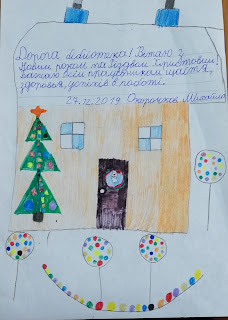 Дорога бібліотека! Вітаю з
Новим роком та Різдвом Христовим!
Бажаю всім працівникам щастя,
здоров'я, успіхів в роботі.
27.12.2019 Михайло